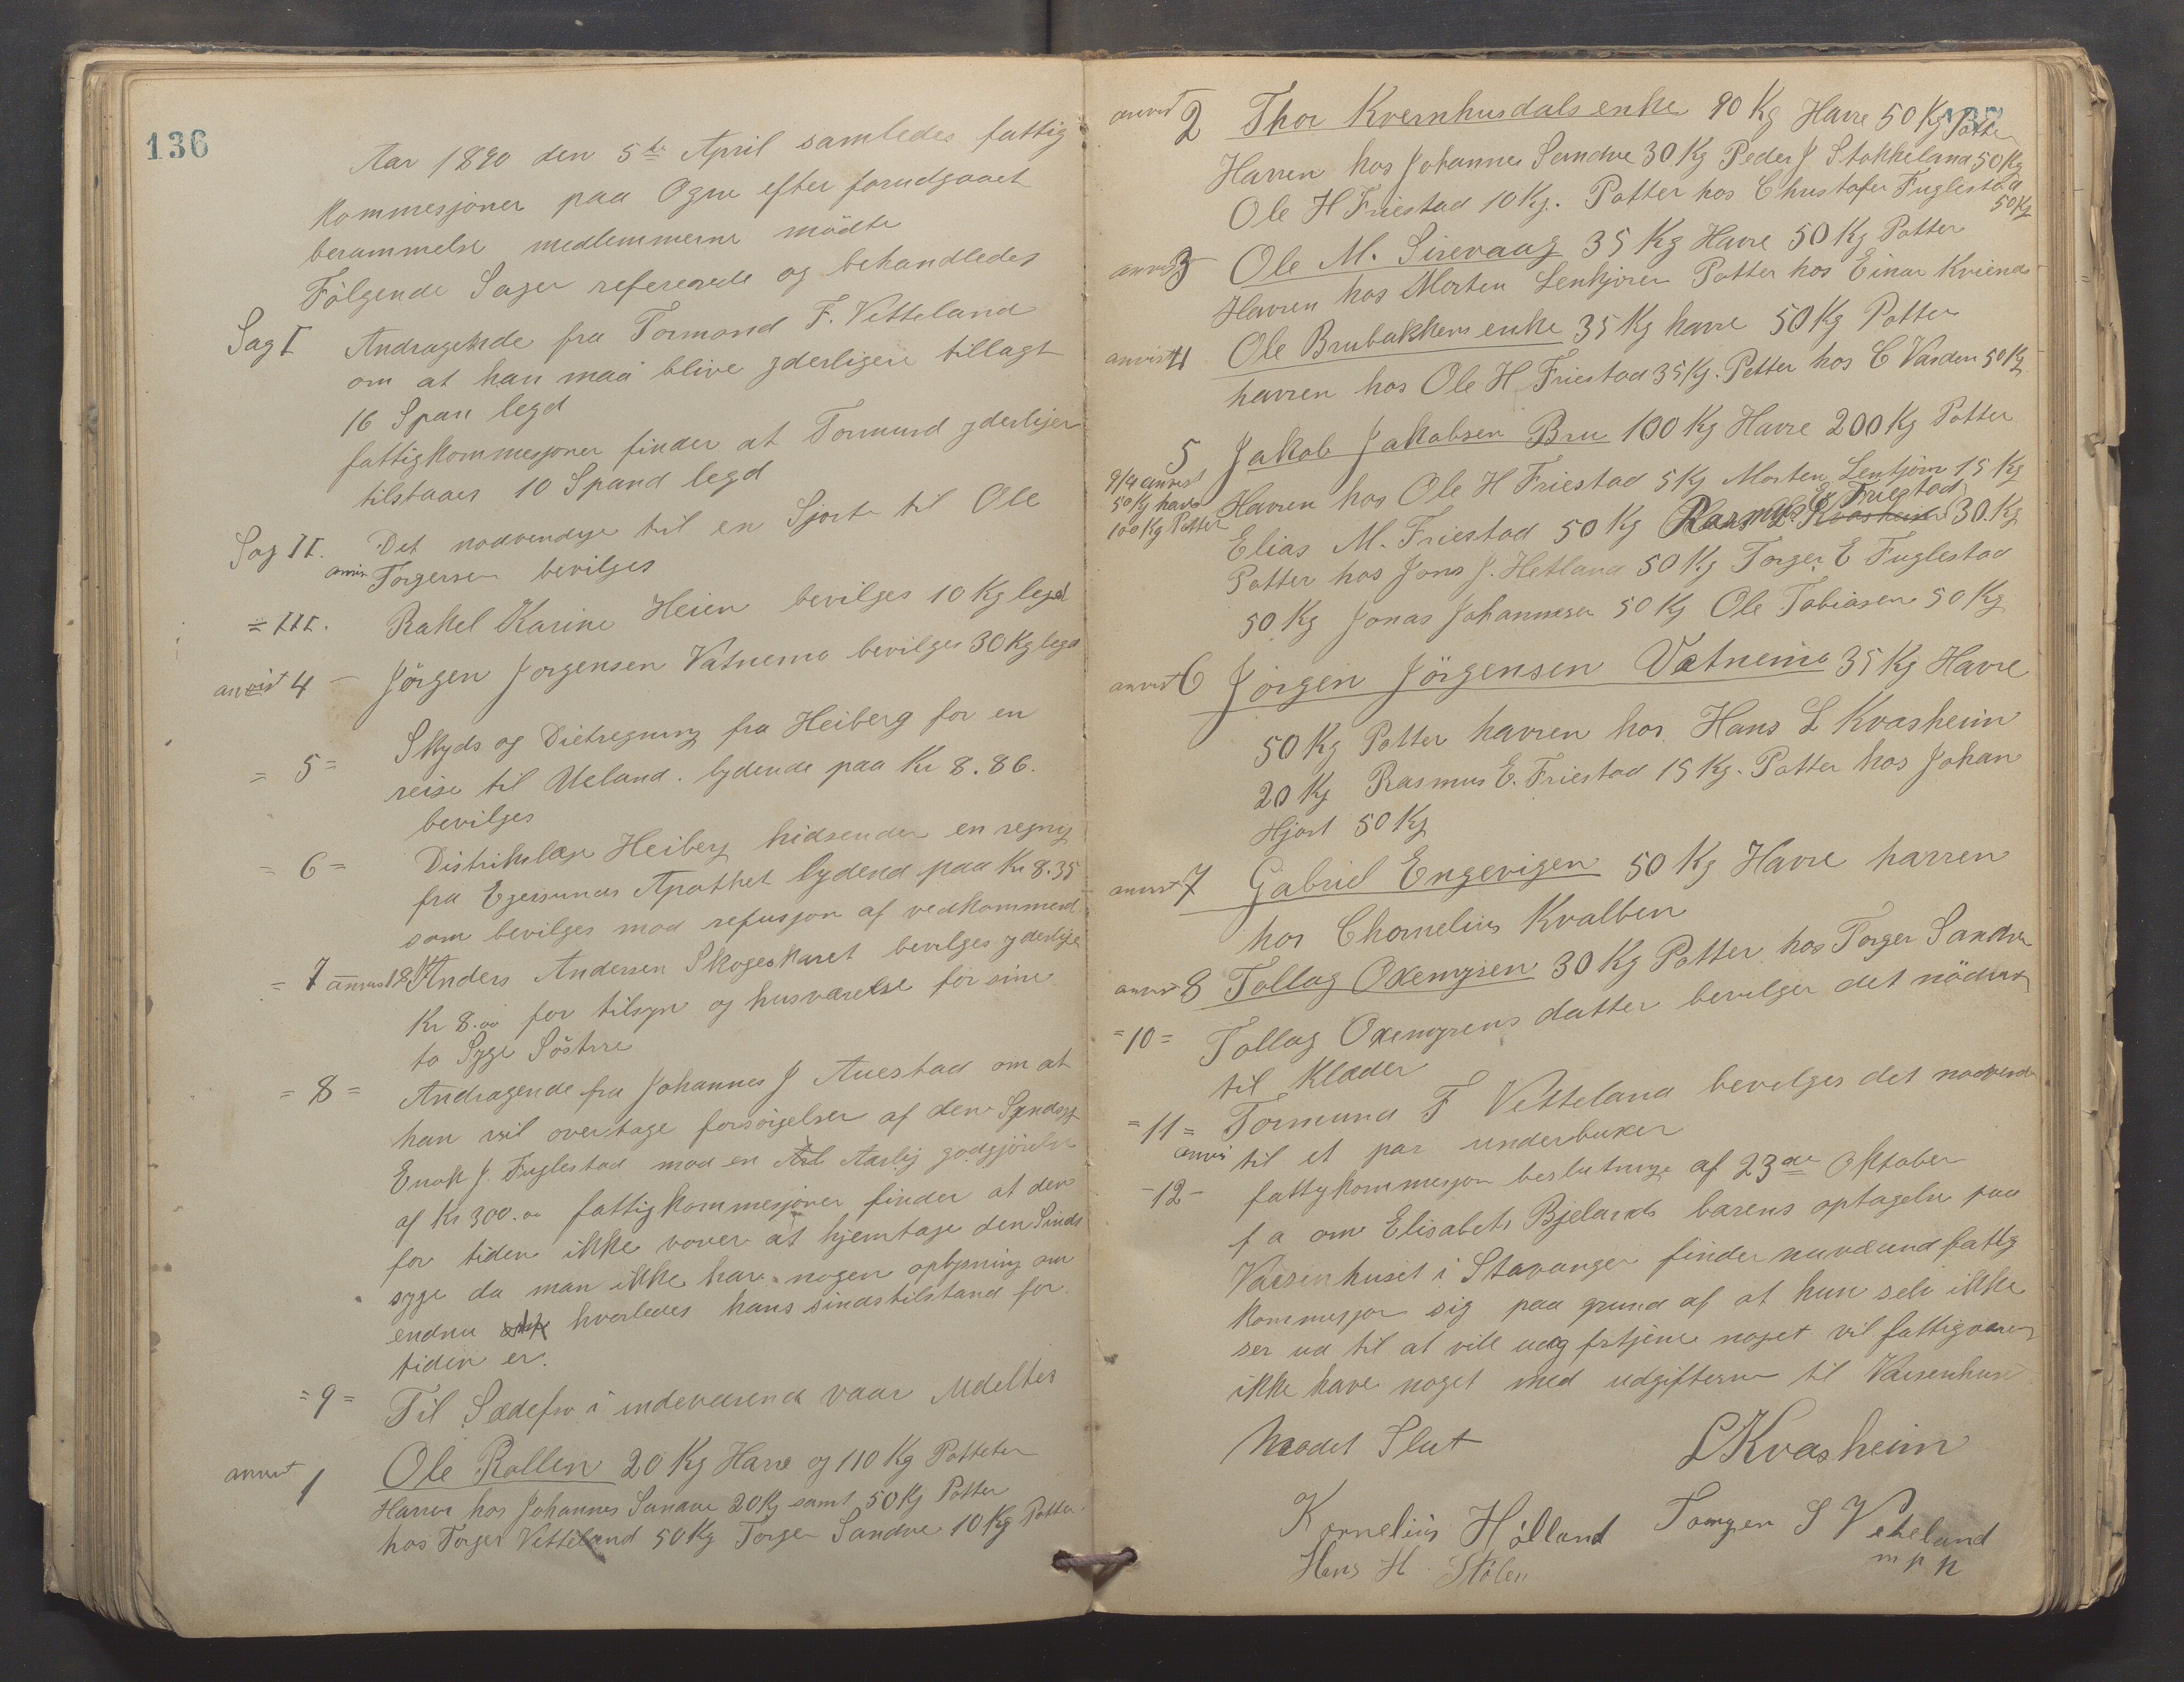 136
Aar 1890 den 5te April samledes fattig
kommesjonen paa Ogne efter forudgaaet
berammelse medlemmerne mödte
Fölgende Sager refererede og behandledes
Sag I Andragende fra Tormond F. Vetteland
om at han maa blive yderligere tillagt
16 Span legd
fattigkommesjonen finder at Tormund yderliger
tilstaaes 10 Spand legd
Sag II. Det nodvendige til en Sjorte til Ole
anvis Torgersen bevilges
= III. Rakel Karine Heien bevilges 10 Kg legd
anvist 4 - Jörgen Jorgensen Vatnemo bevilges 30 Kg legd
= 5 = Skyds og Dietregning fra Heiberg for en
reise til Ueland. lydende paa Kr 8.86.
bevilges
= 6 = Distrikslæge Heiberg hidsender en regnig
fra Egersunds Apothek lydend paa Kr 8.35
som bevilges mod refusjon af vedkommend
= 7 anvist Anders Andersen Skogeskaret bevilges yderlige
Kr 8.00 for tilsyn og husværelse for sine
to Syge Söstre
= 8 = Andragende fra Johannes J Auestad om at
han vil overtage forsörgelsen af den Sindssyg
Enok J. Fuglestad mod en Aarlig godgjörelse
af Kr 300.00 fattigkommesjonen finder at den
for tiden ikke vover at hjemtage den Sinds
syge da man ikke har nogen oplysning om
endnu hvorledes hans sindstilstand for
tiden er.
= 9 = Til Sædefro i indeværende vaar Udeltes
anvist 1 Ole Rollen 20 Kg Havre og 110 Kg Potteter
Havren hos Johannes Sandve 20 Kg samt 50 Kg Potter
hos Torger Vetteland 50 Kg Torger Sandve 10 Kg Potter.
137
anvist 2 Thor Kvernhusdals enke 90 Kg Havre 50 Kg Potter
Havren hos Johannes Sandve 30 Kg Peder J Stokkeland 50 Kg
Ole H Friestad 10 Kg. Potter hos Christofer Fuglestad
50 Kg
anvist 3 Ole M. Sirevaag 35 Kg Havre 50 Kg Potter
Havren hos Morten Lenkjören Potter hos Einar Kviend
anvist 4 Ole Brubakkens enke 35 Kg havre 50 Kg Potter
havren hos Ole H Friestad 35 Kg. Petter hos C Varden 50 Kg
5 Jakob Jakobsen Bru 100 Kg Havre 200 Kg Potter
9/4 anvist
50 Kg havre
100 Kg Potter
Havren hos Ole H Friestad 5 Kg Morten Lenkjörn 15 Kg
Elias M. Friestad 50 Kg Rasmus E Friestad 30. Kg
Potter hos Jons J. Hetland 50 Kg Torger E Fuglestad
50 Kg Jonas Johannesen 50 Kg Ole Tobiasen 50 Kg
anvist 6 Jörgen Jörgensen Vatnemo 35 Kg Havre
50 Kg Potter havren hos Hans L Kvasheim
20 Kg Rasmus E. Friestad 15 Kg. Potter hos Johan
Hjort 50 Kg
anvist 7 Gabriel Engevigen 50 Kg Havre havren
hos Chornelius Kvalben
anvist 8 Tollag Oxemyren 30 Kg Potter hos Torger Sandve
= 10 = Tollag Oxemyrens datter bevilges det nödvst
til Klæder
= 11 = Tormund F Vetteland bevelges det nodvend
anvis til et par underbuxer
- 12 - fattigkommesjon beslutninge af 23de Oktober
f a om Elisabets Bjelands barens optagelse paa
Vaisenhuset i Stavanger finder nuværend fattig
kommesjon sig paa grund af at hun selv ikke
ser ud til at vill udog fortjene noget vil fattigvæsen
ikke have noget med udgifterne til Vaisenhuse
Mødet Slut
L Kvasheim
Kornelius Hölland
Torger S Veteland
m p p
Hans H. Stölen